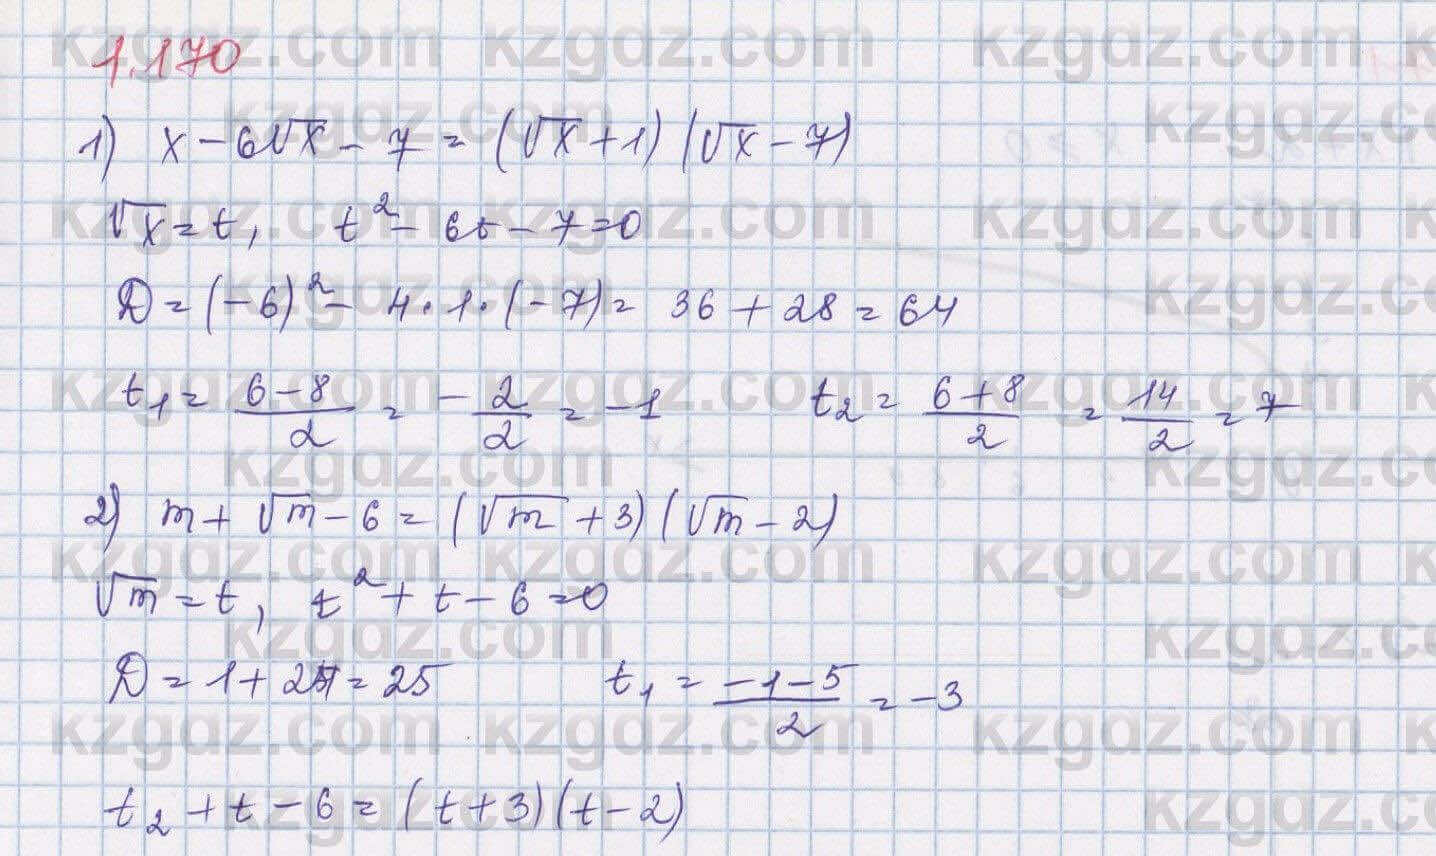 1.170
1) x - 6√x - 7 = (√x + 1) (√x - 7)
√x = t, t² - 6t - 7 = 0
D = (-6)² - 4 · 1 · (-7) = 36 + 28 = 64
t₁ = (6 - 8)/2 = - 2/2 = -1 t₂ = (6 + 8)/2 = 14/2 = 7
2) m + √m - 6 = (√m + 3) (√m - 2)
√m = t, t² + t - 6 = 0
D = 1 + 24 = 25 t₁ = (-1 - 5)/2 = -3
t₂ + t - 6 = (t + 3) (t - 2)
kzgdz.com